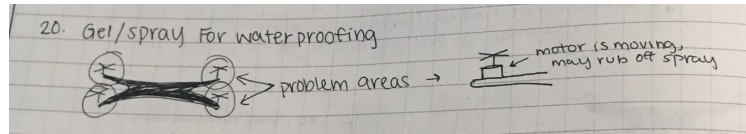 20. Gel/spray For waterproofing
problem areas →
motor is moving,
may rub off spray